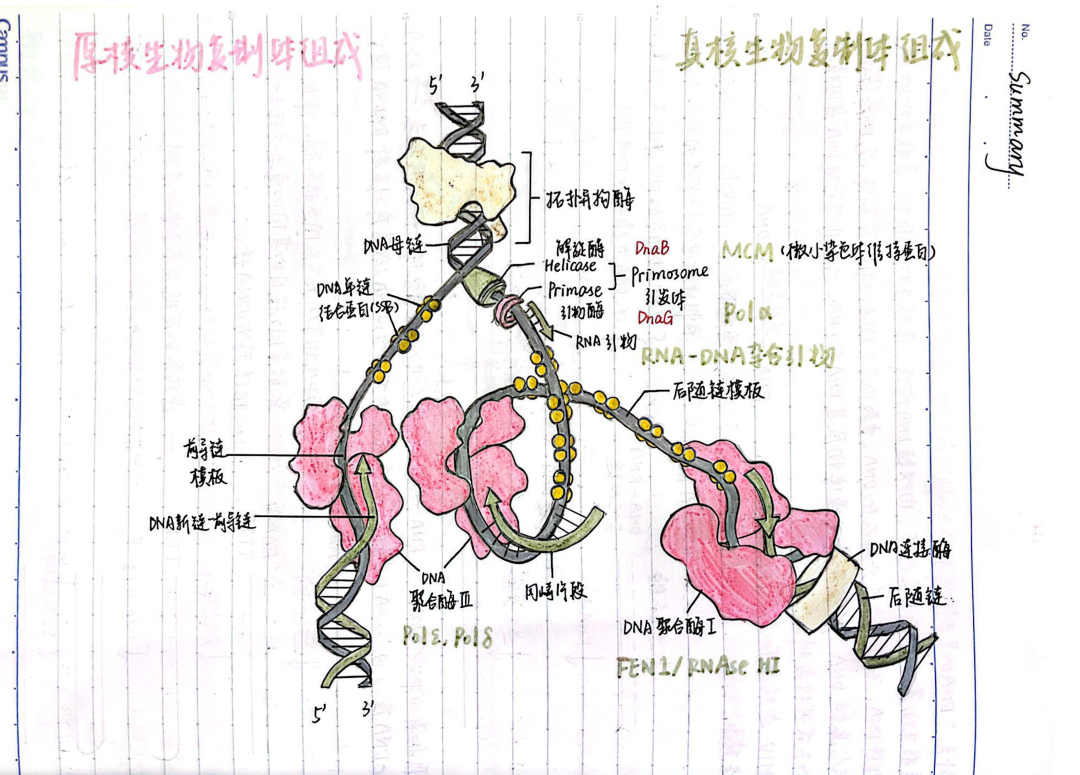 Campus
No.
Date
Summary
原核生物复制体组成
真核生物复制体组成
5' 3'
拓扑异构酶
DNA母链
解旋酶 DnaB
Helicase
Primosome
引发体
Primase
引物酶 DnaG
MCM (微小染色体维持蛋白)
Polα
DNA单链
结合蛋白(SSB)
RNA引物
RNA-DNA杂合引物
后随链模板
前导链
模板
DNA新链-前导链
DNA
聚合酶Ⅲ
Polε. Polδ
冈崎片段
DNA连接酶
后随链
DNA聚合酶Ⅰ
FEN1/RNAse HI
5' 3'